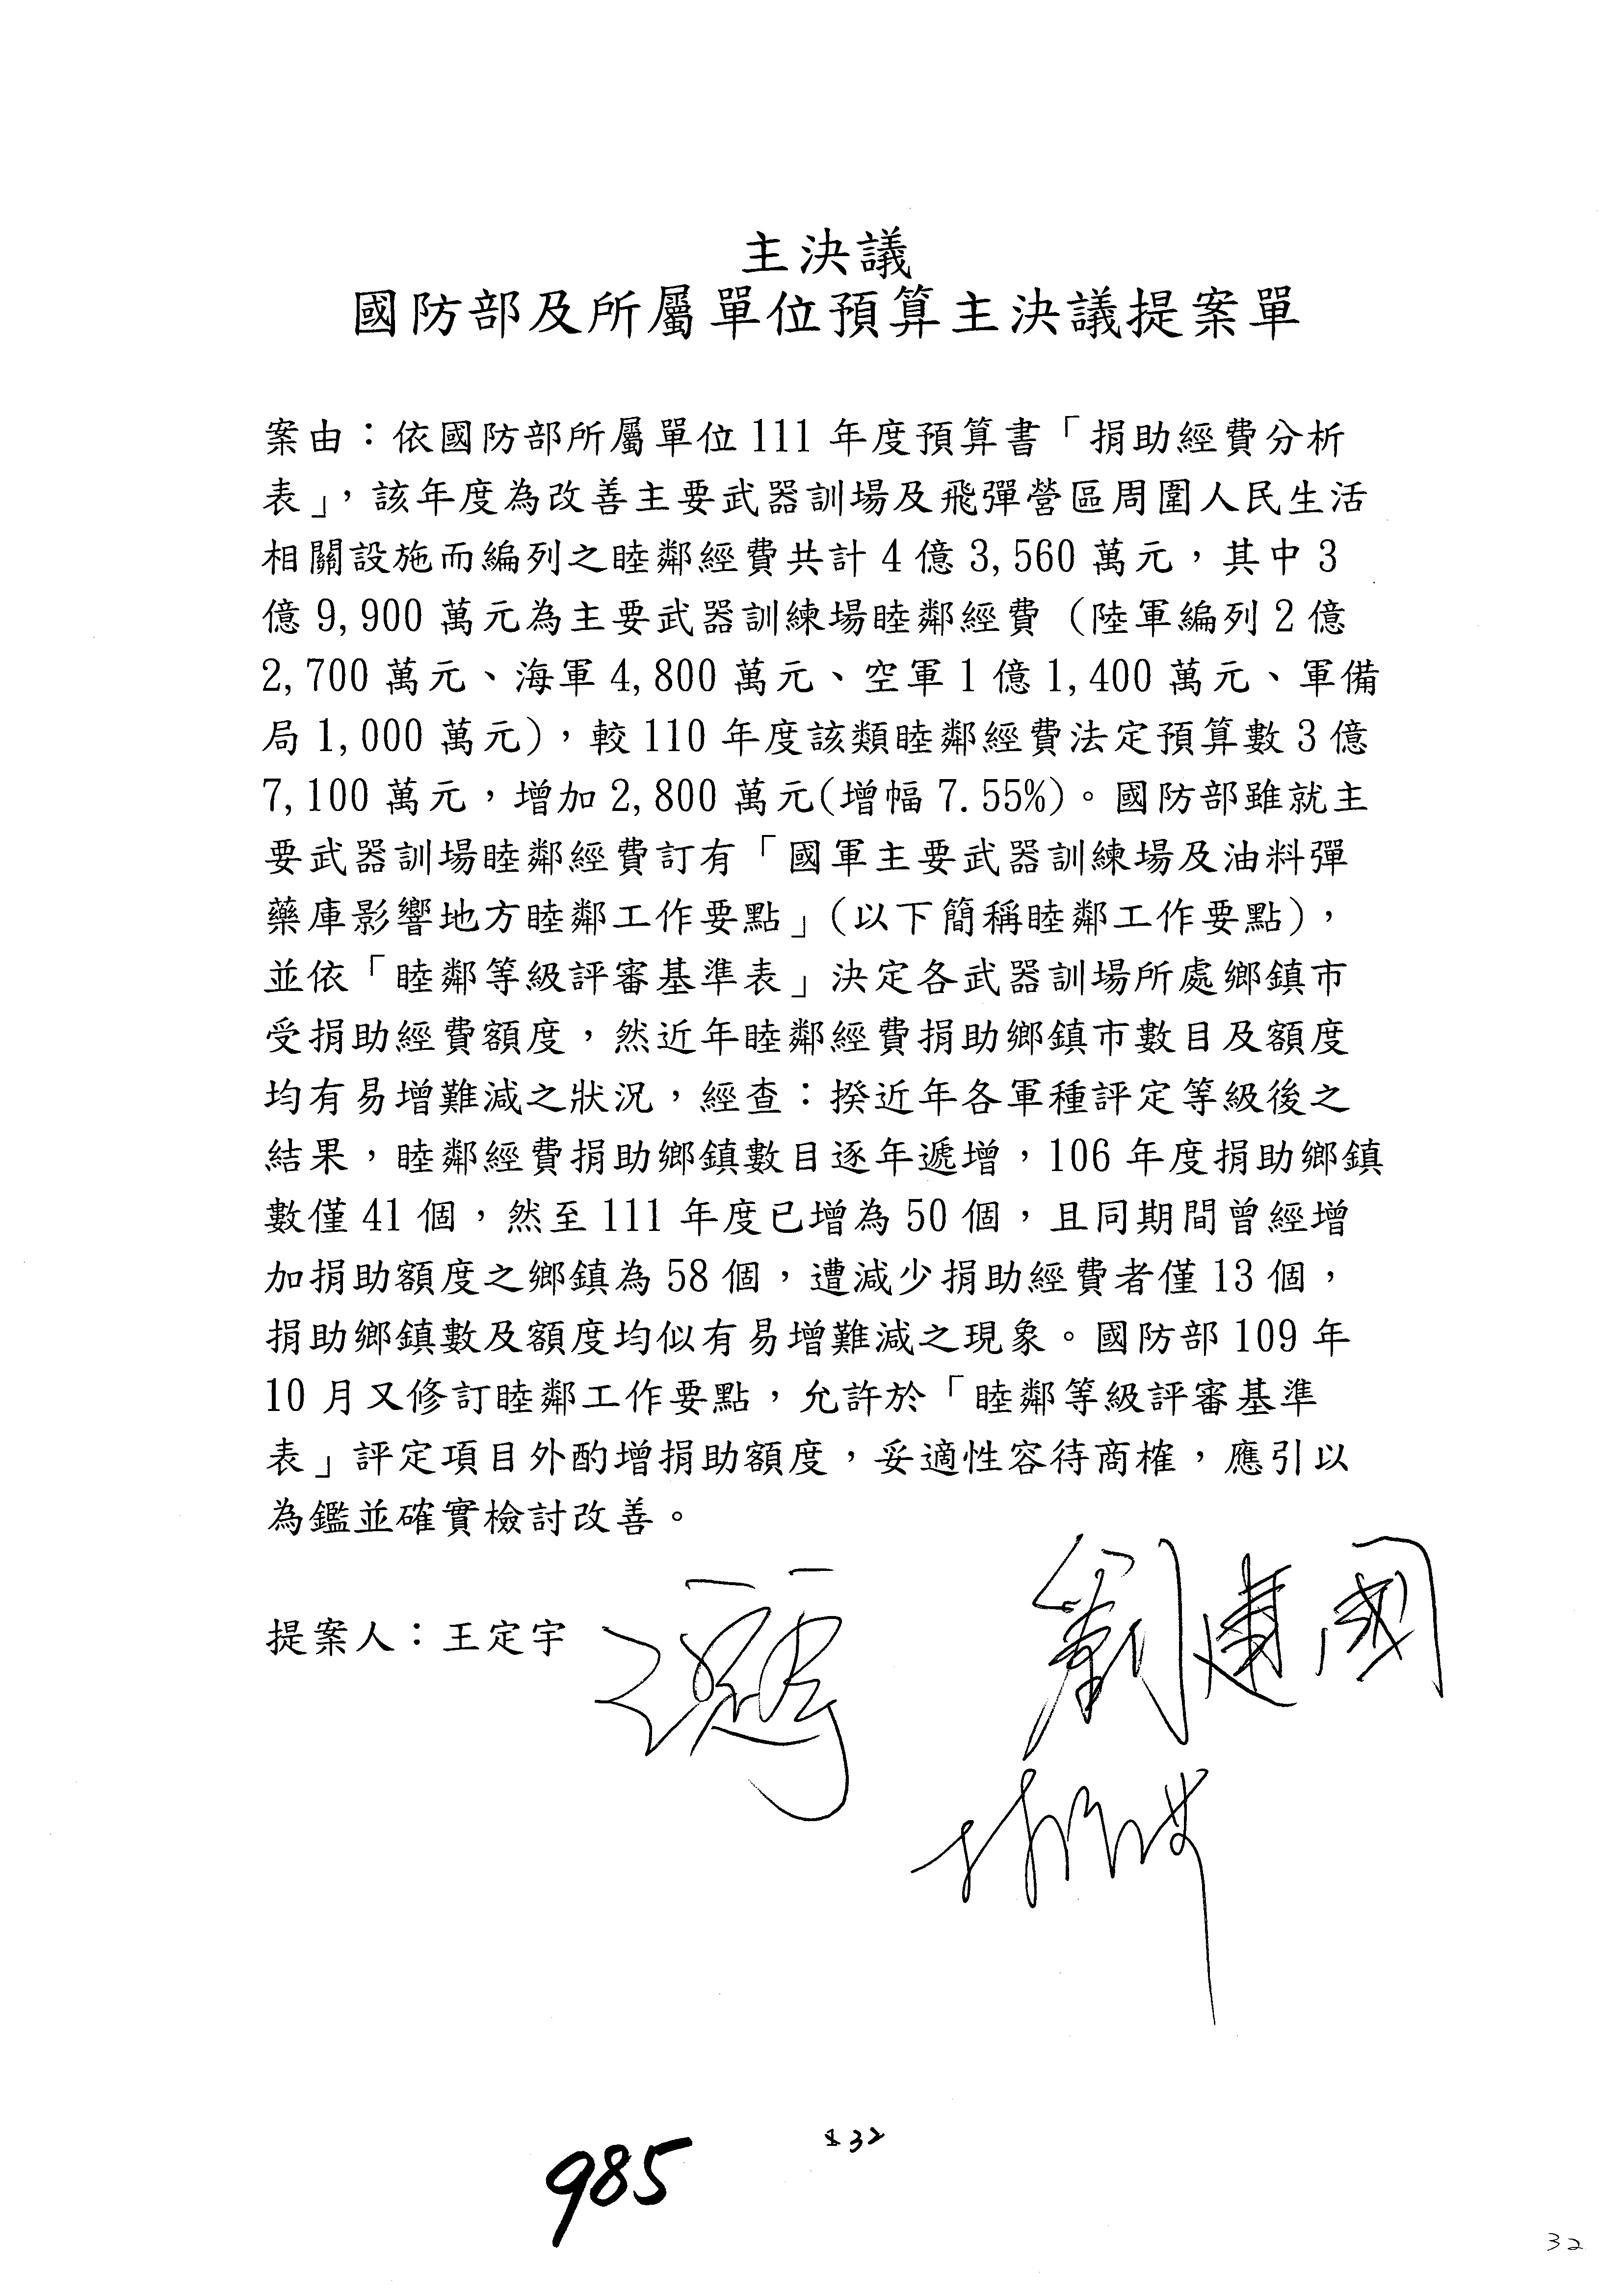 主決議
國防部及所屬單位預算主決議提案單
案由：依國防部所屬單位111年度預算書「捐助經費分析
表」，該年度為改善主要武器訓場及飛彈營區周圍人民生活
相關設施而編列之睦鄰經費共計4億3,560萬元，其中3
億9,900萬元為主要武器訓練場睦鄰經費（陸軍編列2億
2,700萬元、海軍4,800萬元、空軍1億1,400萬元、軍備
局1,000萬元），較110年度該類睦鄰經費法定預算數3億
7,100萬元，增加2,800萬元(增幅7.55%)。國防部雖就主
要武器訓場睦鄰經費訂有「國軍主要武器訓練場及油料彈
藥庫影響地方睦鄰工作要點」(以下簡稱睦鄰工作要點)，
並依「睦鄰等級評審基準表」決定各武器訓場所處鄉鎮市
受捐助經費額度，然近年睦鄰經費捐助鄉鎮市數目及額度
均有易增難減之狀況，經查：揆近年各軍種評定等級後之
結果，睦鄰經費捐助鄉鎮數目逐年遞增，106年度捐助鄉鎮
數僅41個，然至111年度已增為50個，且同期間曾經增
加捐助額度之鄉鎮為58個，遭減少捐助經費者僅13個，
捐助鄉鎮數及額度均似有易增難減之現象。國防部109年
10月又修訂睦鄰工作要點，允許於「睦鄰等級評審基準
表」評定項目外酌增捐助額度，妥適性容待商榷，應引以
為鑑並確實檢討改善。
劉建國
提案人：王定宇
32
985
32